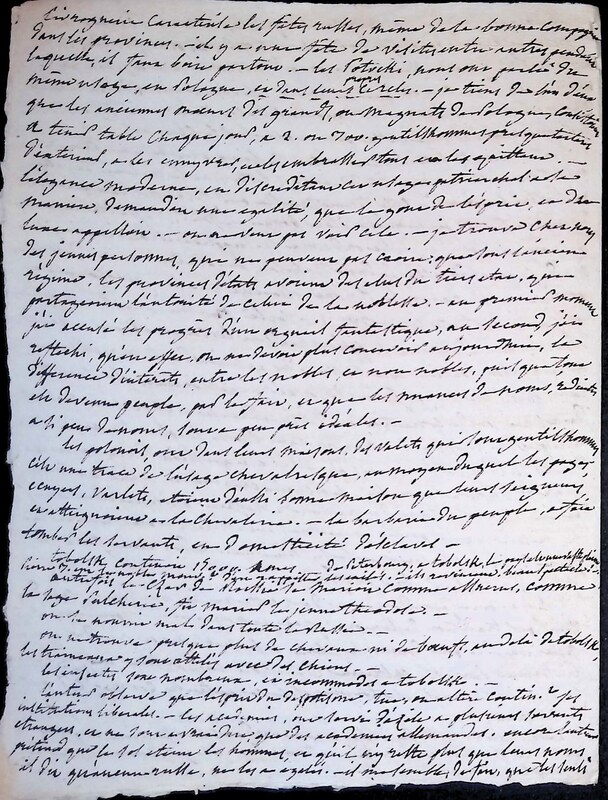 L'ivrognerie caractérise les fêtes russes, même de la bonne compagnie
dans les provinces. - il y a une fête de visites entre autres, pendant
laquelle, il faut boire partout. - les Potocki, nous ont parlé du
même usage, en Pologne, et dans leurs propres cercles. - je tiens de l'un d'eux
que les anciennes mœurs des grands, ou magnats de Pologne, consistaient
a tenir table chaque jour, a 2. ou 300. gentilshommes presque
a les enivrer, et les embrasser tous en les quittant. -
l'élégance moderne, en discréditant cet usage patriarchal a sa
manière, demandoit une égalité, que le goût de l'esprit, et du
luxe appelloit. - on ne veut pas voir cela. - je trouve chez nous
des jeunes personnes, qui ne peuvent pas croire, que sous l'ancien
régime, les provinces d'états avoient des élus du tiers état, qui
partageoient l'autorité de celui de la noblesse. - au premier moment
j'ai accusé les progrès d'un orgueil fantastique, au second, j'ai
réfléchi, qu'en effet, on ne devoit plus concevoir aujourd'hui, la
différence d'intérêts, entre les nobles, et non nobles, puisque tout
est devenu peuple, par le fait, et que les nuances de noms, réduites
a si peu de noms, sont a peu près idéales. -
les polonois, ont dans leurs maisons, des valets qui sont gentilshommes
c'est une trace de l'usage chevaleresque, au moyen duquel les pages
écuyers, varlets, étoient d'aussi bonne maison que leurs seigneurs
en atteignoient a la chevalerie. - la barbarie du peuple, a fait
tomber les servants, en domesticité d'esclaves -
tobolsk contient 15000 âmes. de Petersbourg, a tobolsk, le pays
autrefois le Czar de Russie se marioit comme Assuérus, comme
la sage Pulcherie, fit marier le jeune Theodose. -
on se nourrit mal dans toute la Russie. -
on ne trouve presque plus de chevaux ni de bœufs, au delà de tobolsk,
les traineaux y sont attelés avec des chiens. -
les insectes sont nombreux, et incommodes a tobolsk. -
l'auteur observe que l'esprit du despotisme, tue, ou altère contin.t ses
institutions liberales. - les académies, ont servi d'asile a plusieurs savants
étrangers, et ne sont a vrai dire, que des académies allemandes. - encore l'auteur
prétend que le sol éteint les hommes, et qu'il n'y reste plus que leurs noms
il dit qu'aucun russe, ne les a égalés. - il me semble, de fait, que les seuls